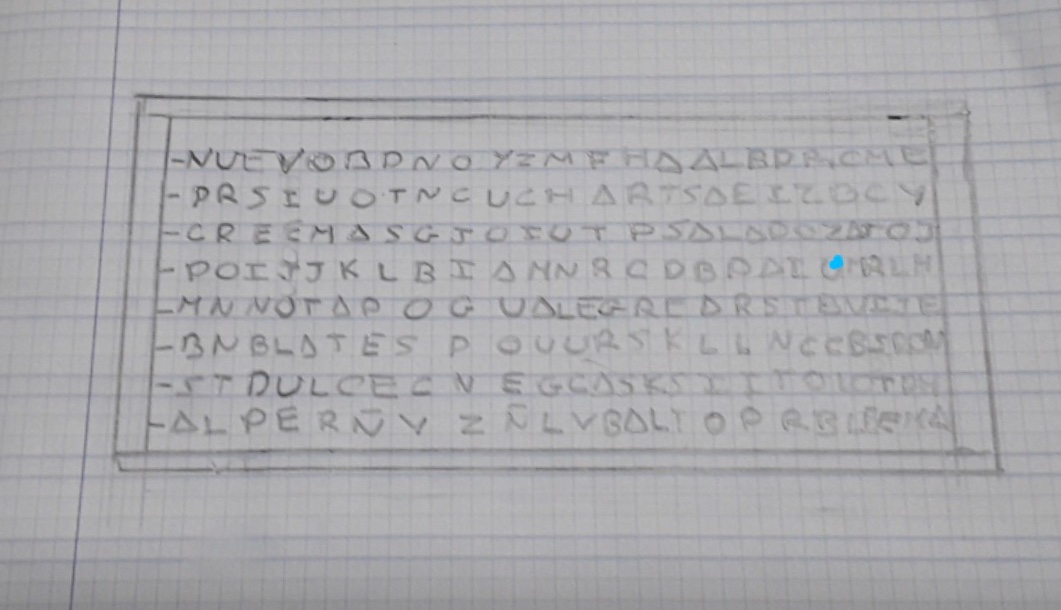 -NUEVOBDNOYZMFHAALBDR,CME
-PRSIUOTNCUCHARTSAEIZBCY
-CREEMASGJOIUTPSALADCZATOJ
-POIJJKLBIAMNRCDBDAIUMRLH
-MNNOTAPOGUALEGREARSTBUITE
-BNBLATESPOUURSKLLNCCBS
-STDULCECNEGCASKSIITOLOTPH
-ALPERÑYZÑLVBALTOPRB